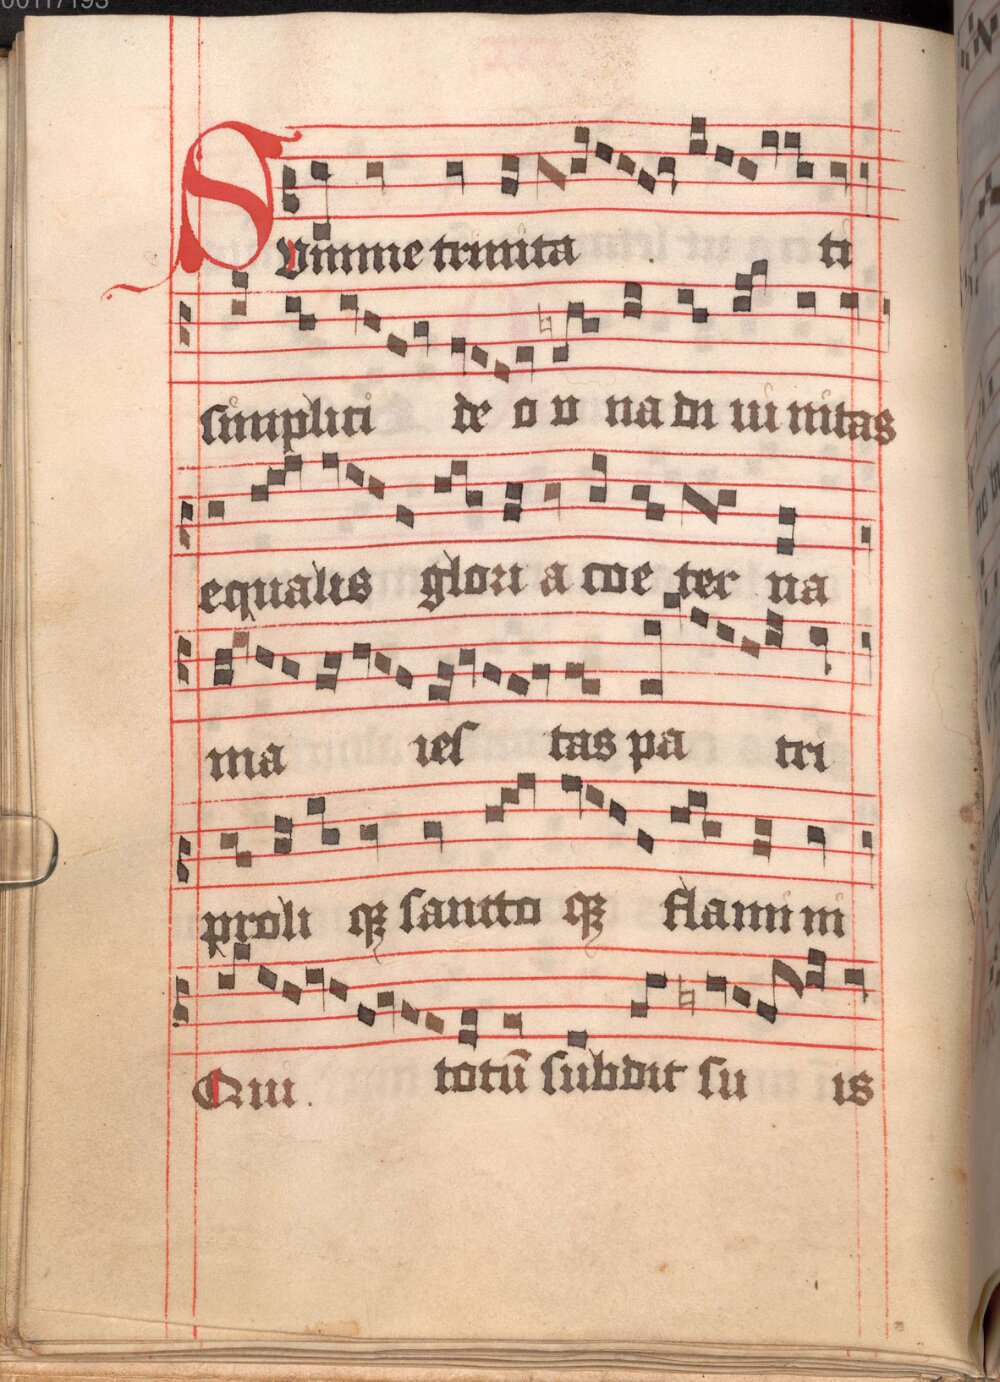 00117193
SVmme trinita ti
simplici de o v na di ui nitas
equalis glori a coe ter na
ma ies tas pa tri
proli qz sancto qz flamini
Qui. totū subdit su is